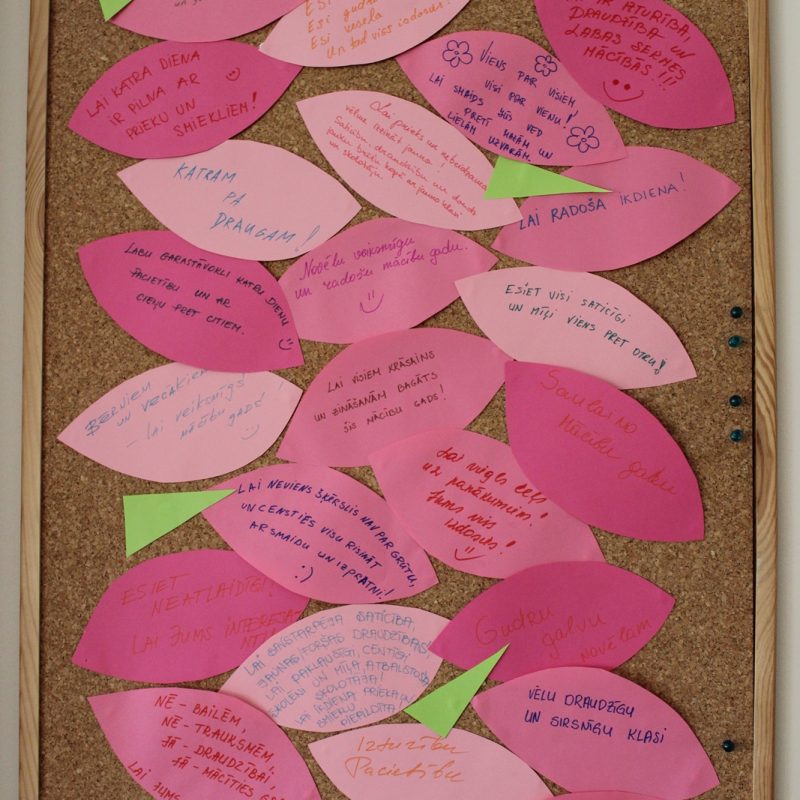 ESI GUDRA
ESI VESELA
UN TAD VISS IZDOSIES!
IR ATURĪBA,
DRAUDZĪBA UN
LABAS SEKMES
MĀCĪBĀS!!!
LAI KATRA DIENA
IR PILNA AR
PRIEKU UN
SMIEKLIEM!
VIENS PAR VISIEM,
VISI PAR VIENU!
LAI SMAIDS JŪS VED
PRETĪ MAZĀM UN
LIELĀM UZVARĀM.
Lai prieks un
vēlme izzināt jauno!
Saticību, draudzību un daudz
jauku brīžu kopā ar jauno klasi
un skolotāju
KATRAM
PA
DRAUGAM!
LAI RADOŠA IKDIENA!
LABU GARASTĀVOKLI KATRU DIENU,
PACIETĪBU UN AR
CIEŅU PRET CITIEM.
Novēlu veiksmīgu
un radošu mācību gadu.
ESIET VISI SATICĪGI
UN MĪĻI VIENS PRET OTRU!
LAI VISIEM KRĀSAINS
UN ZINĀŠANĀM BAGĀTS
ŠIS MĀCĪBU GADS!
BĒRNIEM
UN VECĀKIEM
– LAI VEIKSMĪGS
MĀCĪBU GADS!
Saulaino
Mācību gadu
Lai viegls ceļš
uz panākumiem!
Jums viss
izdosies!
LAI NEVIENS ŠĶĒRSLIS NAV PAR GRŪTU,
UN CENSTIES VISU RISINĀT
AR SMAIDU UN IZPRATNI!
:)
ESIET
NEATLAIDĪGI!
LAI JUMS
LAI SAVSTARPĒJA SATICĪBA,
JAUNAS FORŠAS DRAUDZĪBAS,
LAI PAKLAUSĪGI, CENTĪGI
SKOLĒNI UN MĪĻA, ATBALSTOŠA
SKOLOTĀJA!
LAI IKDIENA PRIEKA UN
SMIEKLU PIEPILDĪTA!
Gudru
galvu
novēlam
NĒ - BAILĒM,
NĒ - TRAUKSMĒM,
JĀ - DRAUDZĪBAI,
JĀ - MĀCĪTIES
LAI JUMS
VĒLU DRAUDZĪGU
UN SIRSNĪGU KLASI
Izturību
Pacietību